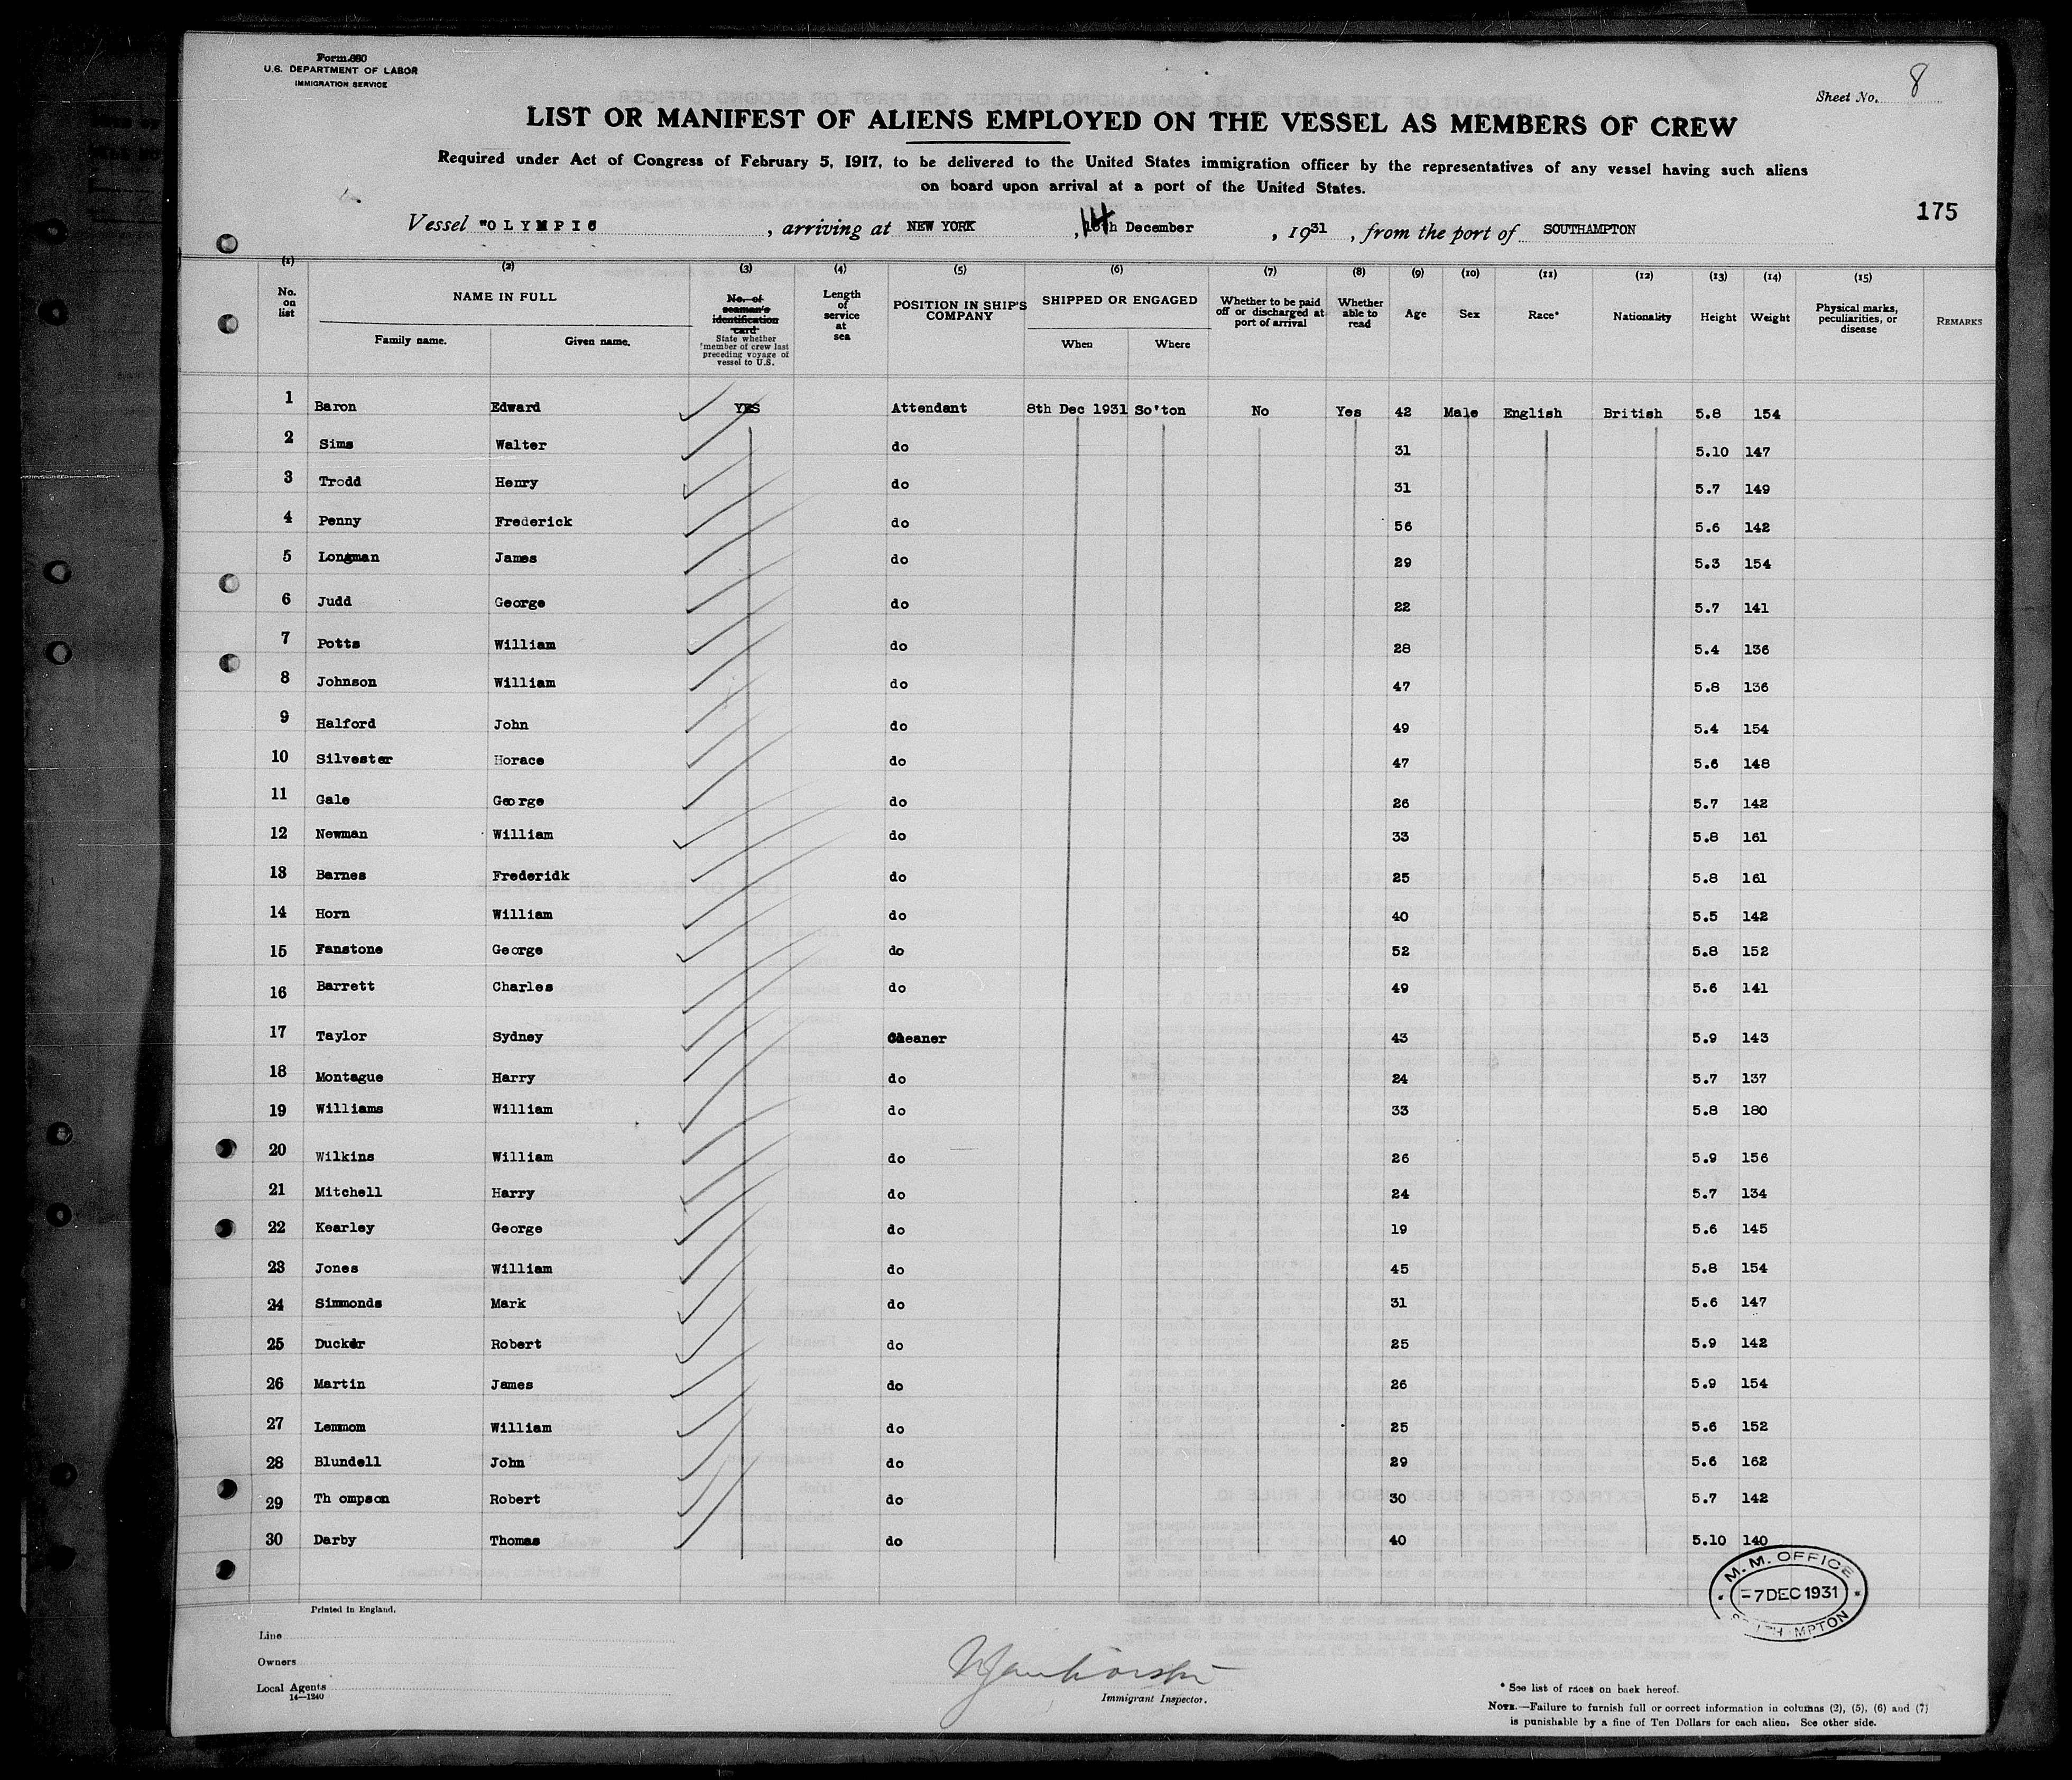 Form 680
U.S. DEPARTMENT OF LABOR
IMMIGRATION SERVICE
Sheet No. 8
LIST OR MANIFEST OF ALIENS EMPLOYED ON THE VESSEL AS MEMBERS OF CREW
Required under Act of Congress of February 5, 1917, to be delivered to the United States immigration officer by the representatives of any vessel having such aliens
on board upon arrival at a port of the United States.
175
Vessel "OLYMPIC , arriving at NEW YORK , 14th December , 1931 , from the port of SOUTHAMPTON
(1) (2) (3) (4) (5) (6) (7) (8) (9) (10) (11) (12) (13) (14) (15)
No. on list
NAME IN FULL
Family name. Given name.
No. of seaman's identification card
State whether member of crew last preceding voyage of vessel to U.S.
Length of service at sea
POSITION IN SHIP'S COMPANY
SHIPPED OR ENGAGED
When Where
Whether to be paid off or discharged at port of arrival
Whether able to read
Age
Sex
Race*
Nationality
Height
Weight
Physical marks, peculiarities, or disease
REMARKS
1 Baron Edward YES Attendant 8th Dec 1931 So'ton No Yes 42 Male English British 5.8 154
2 Sims Walter do 31 5.10 147
3 Trodd Henry do 31 5.7 149
4 Penny Frederick do 56 5.6 142
5 Longman James do 29 5.3 154
6 Judd George do 22 5.7 141
7 Potts William do 28 5.4 136
8 Johnson William do 47 5.8 136
9 Halford John do 49 5.4 154
10 Silvester Horace do 47 5.6 148
11 Gale George do 26 5.7 142
12 Newman William do 33 5.8 161
13 Barnes Frederidk do 25 5.8 161
14 Horn William do 40 5.5 142
15 Fanstone George do 52 5.8 152
16 Barrett Charles do 49 5.6 141
17 Taylor Sydney Cleaner 43 5.9 143
18 Montague Harry do 24 5.7 137
19 Williams William do 33 5.8 180
20 Wilkins William do 26 5.9 156
21 Mitchell Harry do 24 5.7 134
22 Kearley George do 19 5.6 145
23 Jones William do 45 5.8 154
24 Simmonds Mark do 31 5.6 147
25 Ducker Robert do 25 5.9 142
26 Martin James do 26 5.9 154
27 Lemmom William do 25 5.6 152
28 Blundell John do 29 5.6 162
29 Th ompson Robert do 30 5.7 142
30 Darby Thomas do 40 5.10 140
M. M. OFFICE
-7 DEC 1931
Printed in England.
Line
Owners
Local Agents
14—1240
Immigrant Inspector.
* See list of races on back hereof.
NOTE.—Failure to furnish full or correct information in columns (2), (5), (6) and (7)
is punishable by a fine of Ten Dollars for each alien. See other side.